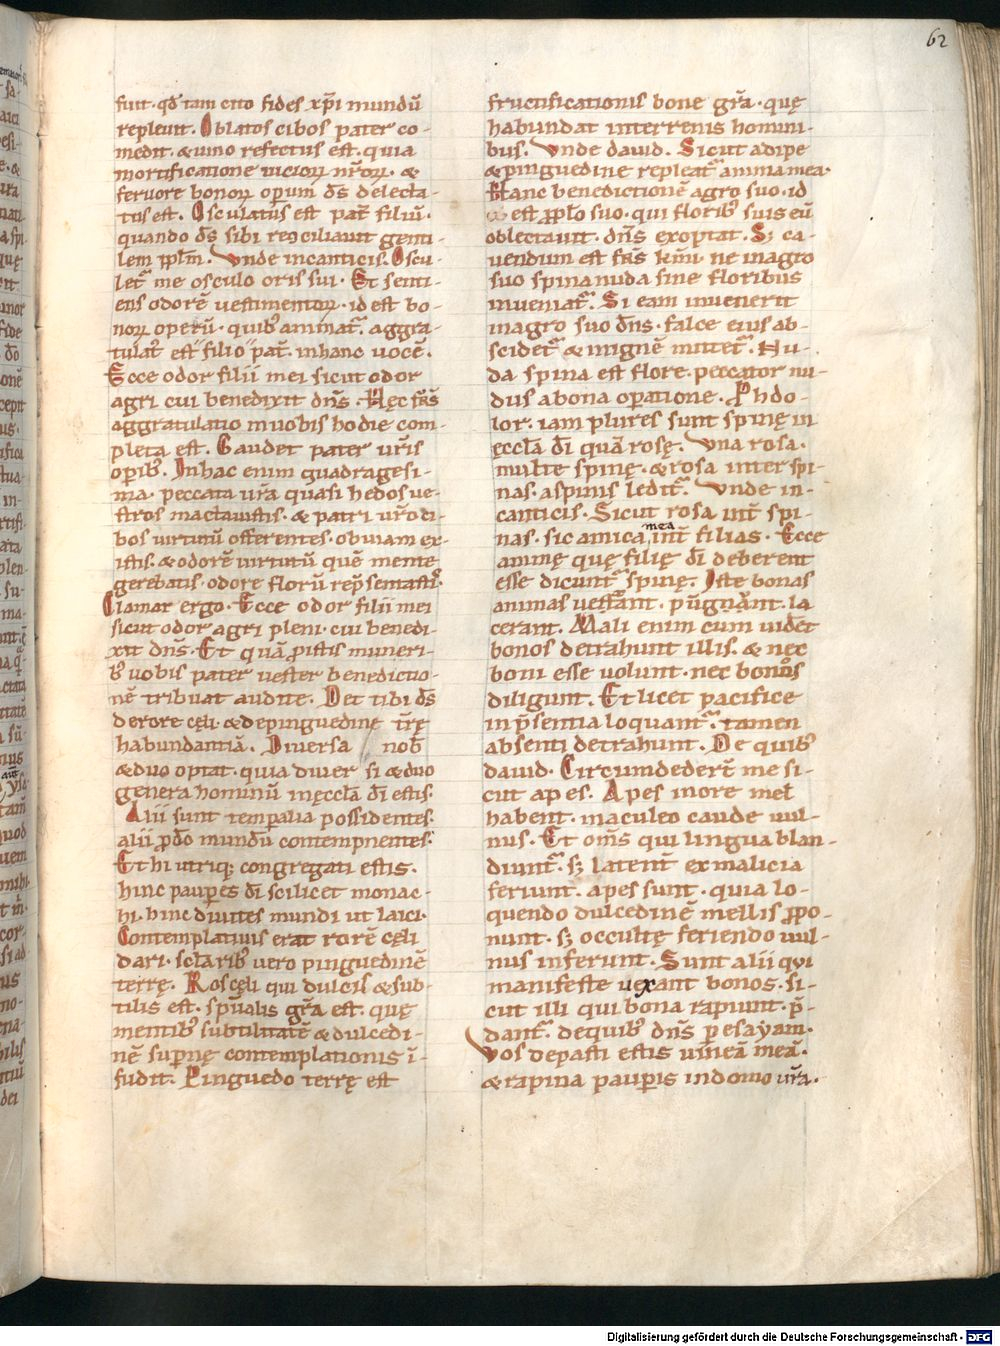 62
fuit. qd̄ tam cito fides xp̄i mundū
repleuit. Oblatos cibos pater co-
medit. & uino refectus est. quia
mortificatione uicioꝝ nr̄oꝝ. &
feruore bonoꝝ operum d̄s delecta-
tus est. Osculatus est pat̄ filiū.
quando d̄s sibi reconciliauit genti-
lem pp̄lm̄. Vnde incanticis. Oscu-
let̄ me osculo oris sui. Et senti-
ens odorē uestimentoꝝ. id est bo-
noꝝ operū. quibꝰ animat̄. aggra-
tulat̄ est filio pat̄. inhanc uocē.
Ecce odor filii mei sicut odor
agri cui benedixit dn̄s. Hęc fr̄s
aggratulatio inuobis hodie com-
pleta est. Gaudet pater ur̄is
opibꝰ. Inhac enim quadragesi-
ma. peccata ur̄a quasi hedos ue-
stros mactauistis. & patri ur̄o ci-
bos uirtutū offerentes. obuiam ex-
istis. & odorē uirtutū quē mente
gerebatis. odore florū rep̄sentastis.
Clamat ergo. Ecce odor filii mei
sicut odor agri pleni. cui benedi-
xit dn̄s. Et quā p̱istis muneri-
bꝰ uobis pater uester benedictio-
nē tribuat audite. Det tibi d̄s
derore cęli. & depinguedine t̄rę
habundantiā. Diuersa nob̄
& duo optat. quia diuer si & duo
genera hominū inęccl̄a d̄i estis.
Alii sunt temporalia possidentes.
alii p̱ d̄o mundū contempnentes.
Et hi utriq; congregati estis.
hinc paup̱es d̄i scilicet monac-
hi. hinc diuites mundi ut laici.
Contemplatiuis erat rorē cęli
dari. sc̄laribꝰ uero pinguedinē
terrę. Ros cęli qui dulcis & sub-
tilis est. sp̄ualis gr̄a est. quę
mentibꝰ subtilitatē & dulcedi-
nē sup̱nę contemplationis ī-
fudit. Pinguedo terrę est
fructificationis bone gr̄a. quę
habundat interrenis homini-
bus. Vnde dauid. Sicut adipe
& pinguedine repleat̄ anima mea.
Hanc benedictionē agro suo. id
est pp̄lo suo. qui floribꝰ suis eū
oblectauit. dn̄s exoptat. Sꝫ ca-
uendum est fr̄s km̄i. ne inagro
suo spina nuda sine floribus
inueniat̄. Si eam inuenerit
inagro suo dn̄s. falce eius ab-
scidet̄ & inignē mittet̄. Nu-
da spina est flore. peccator nu-
dus abona op̱atione. Ph do-
lor. iam plures sunt spinę in
eccl̄a d̄i quā rosę. Vna rosa.
multe spinę. & rosa inter spi-
nas. aspinis ledit̄. Vnde in-
canticis. Sicut rosa int̄ spi-
nas. sic amica mea int̄ filias. Ecce
animę quę filię d̄i deberent
esse dicunt̄ spinę. Iste bonas
animas uexant. pūgnant. la
cerant. Mali enim cum uidēt
bonos detrahunt illis. & nec
boni esse uolunt. nec bonos
diligunt. Et licet pacifice
in p̄sentia loquant̄. tamen
absenti detrahunt. De quibꝰ
dauid. Circumdeder̄t me si-
cut apes. Apes in ore mel
habent. in aculeo caude uul-
nus. Et om̄s qui lingua blan-
diunt̄. sꝫ latent̄ ex malicia
feriunt. apes sunt. quia lo-
quendo dulcedinē mellis p̱po-
nunt. sꝫ occultę feriendo uul-
nus inferunt. Sunt alii qui
manifeste uexant bonos. si-
cut illi qui bona rapiunt. p̄-
dant̄. dequibꝰ dn̄s p̱ esayam.
Vos depasti estis uineā meā.
& rapina paup̱is indomo ur̄a.
Digitalisierung gefördert durch die Deutsche Forschungsgemeinschaft - DFG